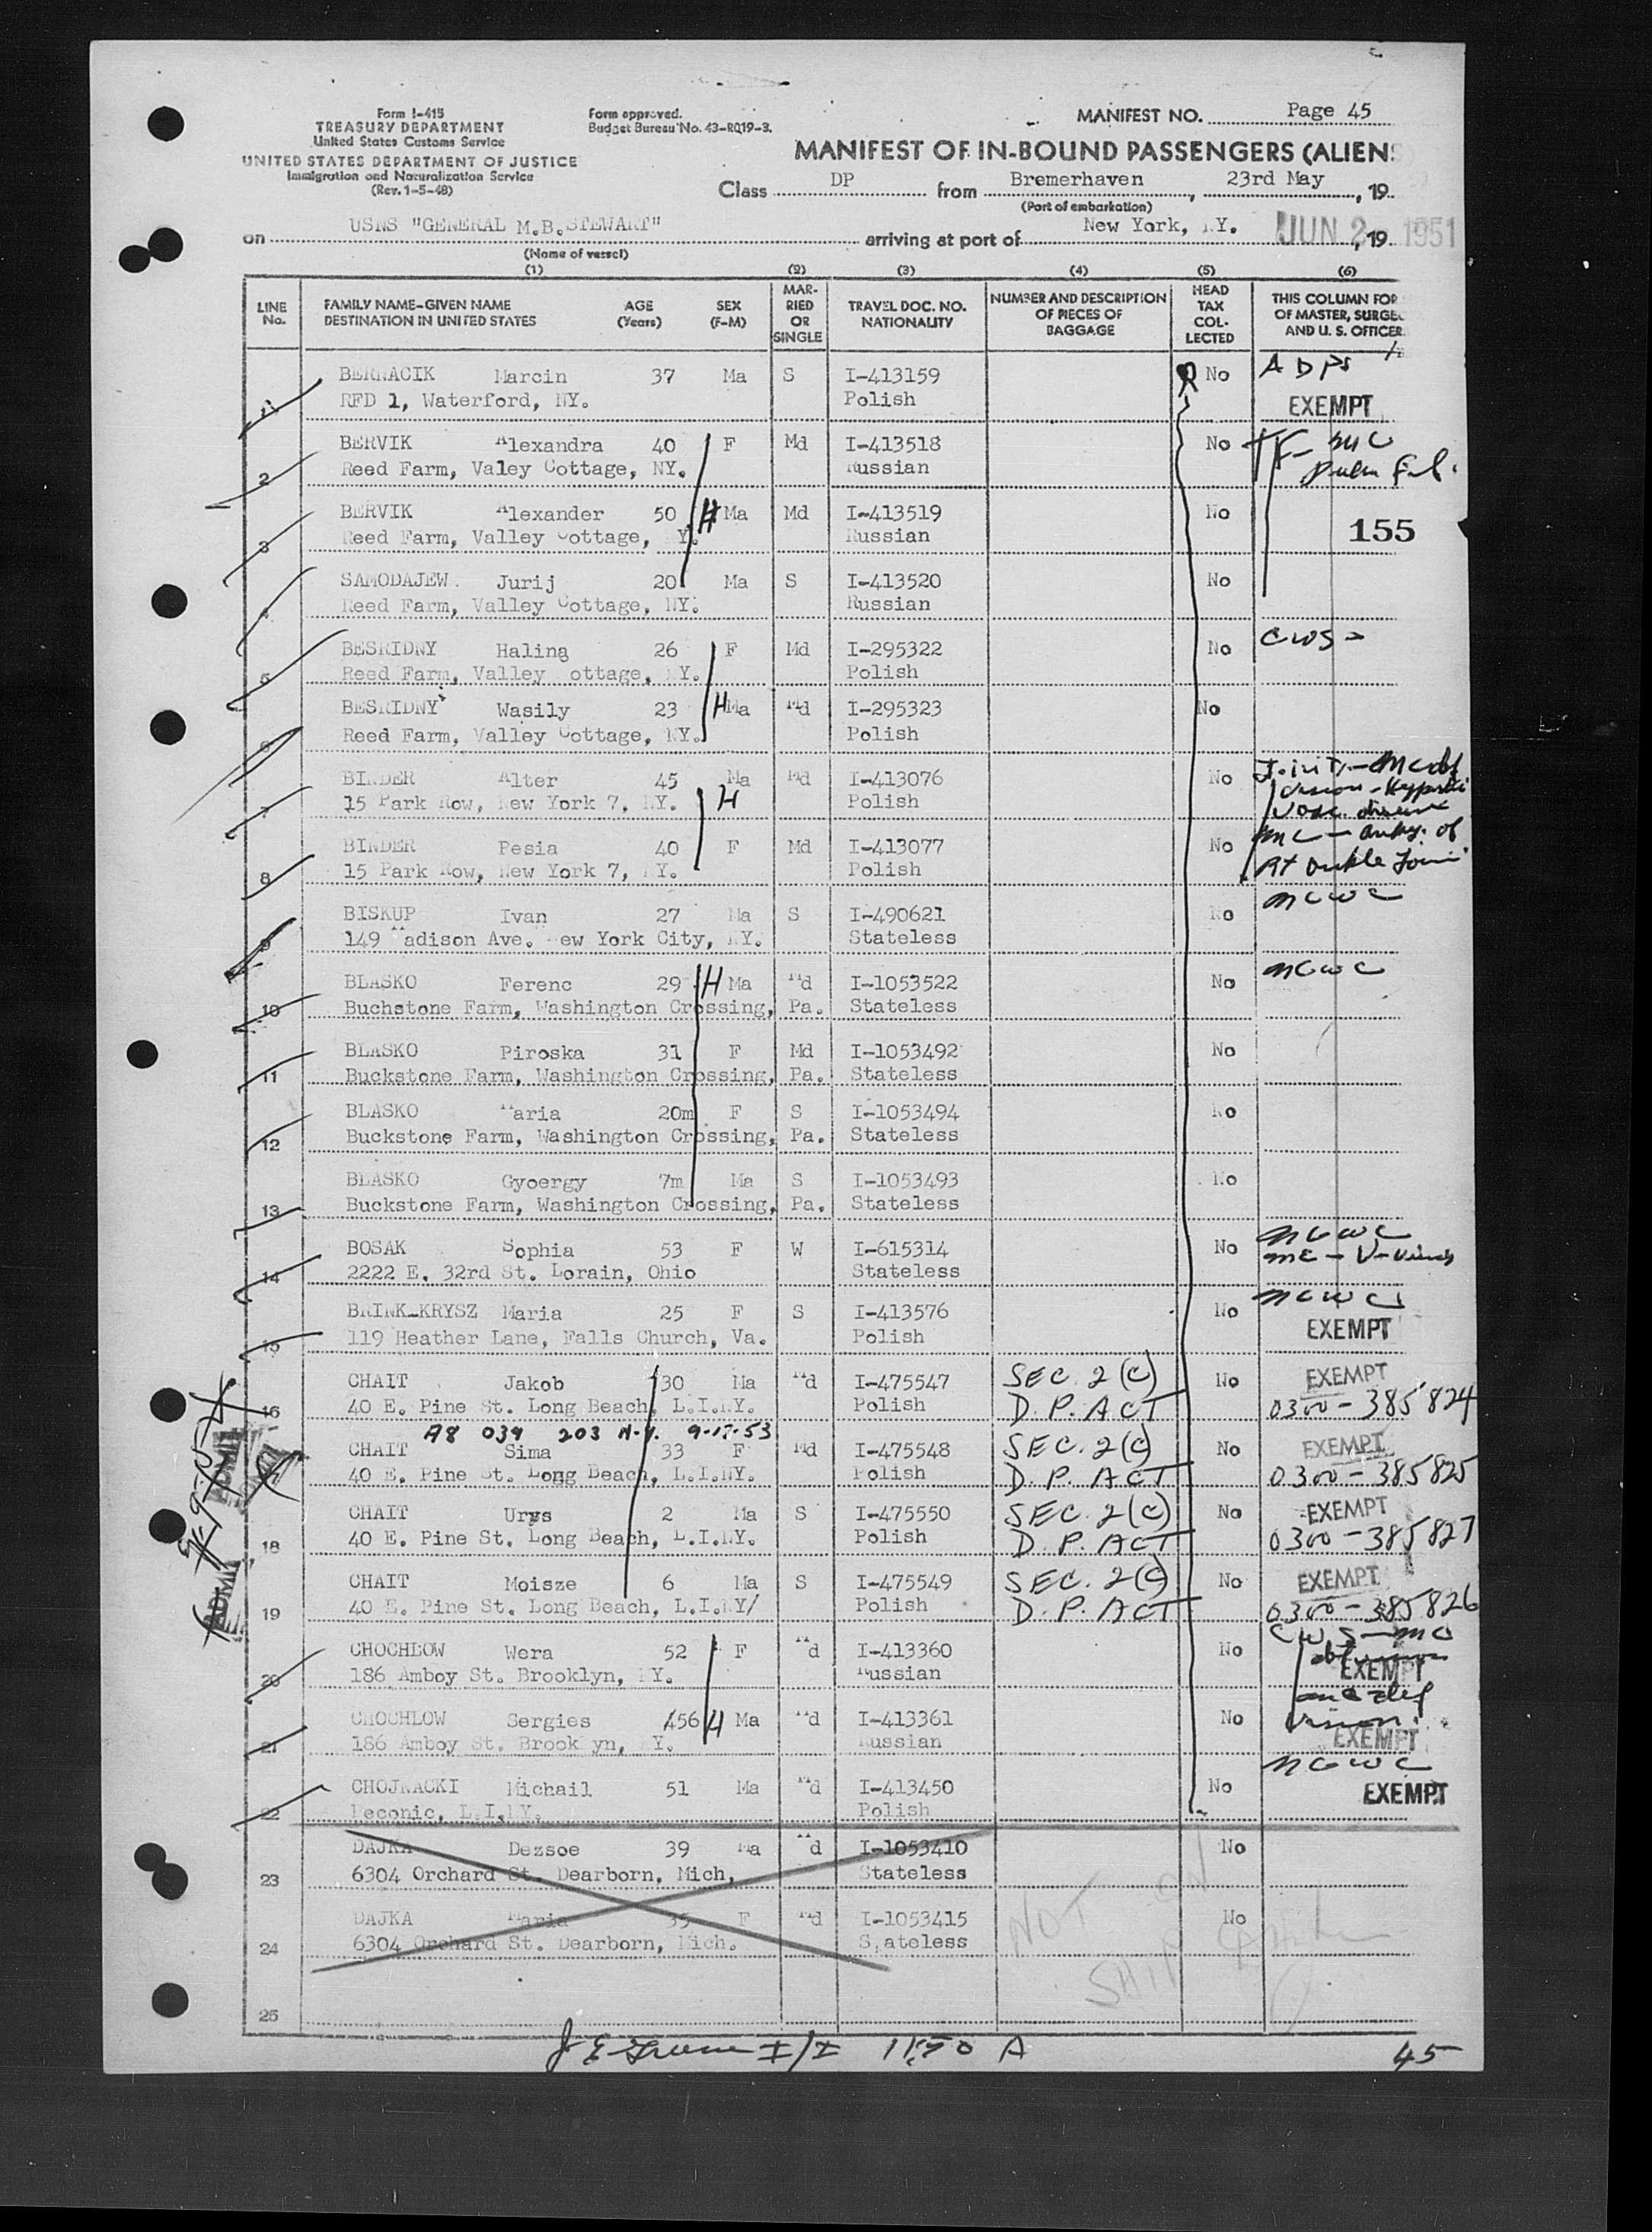 Form I-415
TREASURY DEPARTMENT
United States Customs Service
UNITED STATES DEPARTMENT OF JUSTICE
Immigration and Naturalization Service
(Rev. 1-5-48)
Form approved.
Budget Bureau No. 43-RQ19-3.
MANIFEST NO. Page 45
MANIFEST OF IN-BOUND PASSENGERS (ALIENS
Class DP from Bremerhaven, 23rd May, 19
(Port of embarkation)
on USNS "GENERAL M.B.STEWART" arriving at port of New York, NY. JUN 2, 19 1951
(Name of vessel)
(1) (2) (3) (4) (5) (6)
LINE No. FAMILY NAME-GIVEN NAME DESTINATION IN UNITED STATES AGE (Years) SEX (F-M) MARRIED OR SINGLE TRAVEL DOC. NO. NATIONALITY NUMBER AND DESCRIPTION OF PIECES OF BAGGAGE HEAD TAX COLLECTED THIS COLUMN FOR OF MASTER, SURGE AND U. S. OFFICER
1 BERNACIK Marcin 37 Ma S I-413159 No ADPS
RFD 1, Waterford, NY. Polish EXEMPT
2 BERVIK Alexandra 40 F Md I-413518 No TF- MC
Reed Farm, Valey Cottage, NY. Russian
3 BERVIK Alexander 50 H Ma Md I-413519 No
Reed Farm, Valley Cottage, Y. Russian 155
4 SAMODAJEW Jurij 20 Ma S I-413520 No
Reed Farm, Valley Cottage, NY. Russian
5 BESRIDNY Halina 26 F Md I-295322 No CWS-
Reed Farm, Valley ottage, NY. Polish
6 BESRIDNY Wasily 23 H Ma Md I-295323 No
Reed Farm, Valley Cottage, NY. Polish
7 BINDER Alter 45 Ma Md I-413076 No
15 Park Row, New York 7, NY. H Polish
8 BINDER Pesia 40 F Md I-413077 No
15 Park Row, New York 7, Y. Polish Rt Ankle Joint
9 BISKUP Ivan 27 Ma S I-490621 No NCWC
149 Madison Ave. ew York City, NY. Stateless
10 BLASKO Ferenc 29 H Ma Md I-1053522 No NCWC
Buchstone Farm, Washington Crossing, Pa. Stateless
11 BLASKO Piroska 31 F Md I-1053492 No
Buckstone Farm, Washington Crossing, Pa. Stateless
12 BLASKO Maria 20m F S I-1053494 No
Buckstone Farm, Washington Crossing, Pa. Stateless
13 BLASKO Gyoergy 7m Ma S I-1053493 No
Buckstone Farm, Washington Crossing, Pa. Stateless
14 BOSAK Sophia 53 F W I-615314 No NCWC
2222 E. 32rd St. Lorain, Ohio Stateless MC - V-Veins
15 BRINK-KRYSZ Maria 25 F S I-413576 No NCWC
119 Heather Lane, Falls Church, Va. Polish EXEMPT
16 CHAIT Jakob 30 Ma Md I-475547 SEC. 2(C) No EXEMPT
40 E. Pine St. Long Beach, L.I.NY. Polish D.P. ACT 0300-385824
A8 039 203 N.Y. 9-17-53
CHAIT Sima 33 F Md I-475548 SEC. 2(C) No EXEMPT
40 E. Pine St. Long Beach, L.I.NY. Polish D.P. ACT 0300-385825
18 CHAIT Urys 2 Ma S I-475550 SEC. 2(C) No EXEMPT
40 E. Pine St. Long Beach, L.I.NY. Polish D.P. ACT 0300-385827
19 CHAIT Moisze 6 Ma S I-475549 SEC. 2(C) No EXEMPT
40 E. Pine St. Long Beach, L.I.NY/ Polish D.P. ACT 0300-385826
20 CHOCHLOW Wera 52 F Md I-413360 No CWS-MC
186 Amboy St. Brooklyn, NY. Russian EXEMPT
21 CHOCHLOW Sergies 456 H Ma Md I-413361 No vision
186 Amboy St. Brook yn, Y. Russian EXEMPT
22 CHOJNACKI Michail 51 Ma Md I-413450 No NCWC
Peconic, L.I.NY. Polish EXEMPT
23 DAJKA Dezsoe 39 Ma Md I-1053410 No
6304 Orchard St. Dearborn, Mich, Stateless
24 DAJKA Maria 35 F Md I-1053415 No
6304 Orchard St. Dearborn, Mich. Stateless
NOT ON
SHIP
25
J E Greene I/I 11:50 A 45